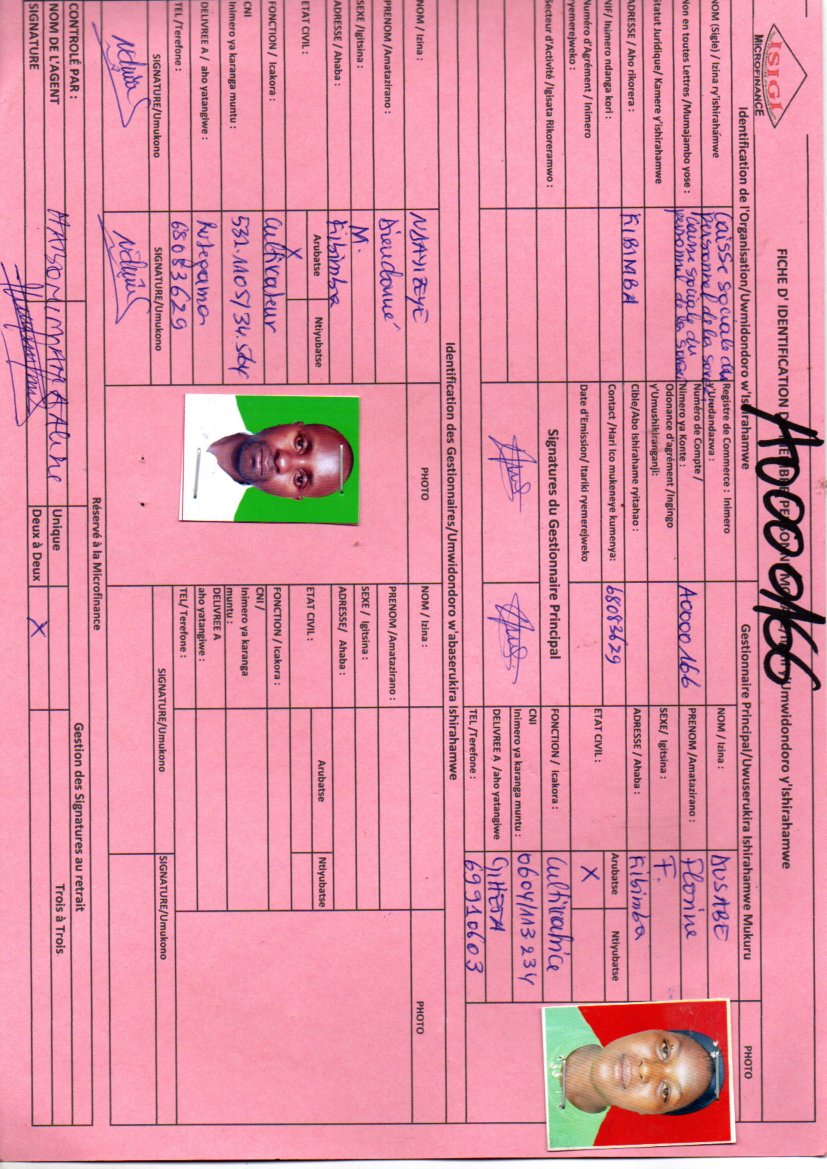 ISIGI
MICROFINANCE
FICHE D' IDENTIFICATION
A0000166
Umwidondoro y'Ishirahamwe
Identification de l'Organisation/Uwmidondoro w'Ishirahamwe
Gestionnaire Principal/Uwuserukira Ishirahamwe Mukuru
PHOTO
NOM (Sigle) / Izina ry'ishirahamwe
Caisse sociale du
Non en toutes Lettres /Mumajambo yose :
personnel de la
Caisse sociale du
personnel de la
Statut Juridique/ Kamere y'ishirahamwe
ADRESSE / Aho rikorera :
KIBIMBA
NIF/ Inimero ndanga kori :
Numéro d'Agrément / Inimero
ryemerejweko :
Secteur d'Activité /Igisata Rikoreramwo :
Registre de Commerce : Inimero
y'Urudandazwa :
Numéro de Compte /
Nimero ya Konte :
A0000166
Odonance d'agrément /Ingingo
y'Umushikiranganji:
Cible/Abo Ishirahame ryitaho :
Contact /Hari ico mukeneye kumenya:
68083629
Date d'Emission/ Itariki ryemerejweko
Signatures du Gestionnaire Principal
NOM / Izina :
DUSABE
PRENOM /Amatazirano :
Florine
SEXE/ Igitsina :
F.
ADRESSE / Ahaba :
Kibimba
ETAT CIVIL :
Arubatse
Ntiyubatse
X
FONCTION / Icakora :
Cultivatrice
CNI
Inimero ya karanga muntu :
0604/113234
DELIVREE A /aho yatangiwe
GIHETA
TEL /Terefone :
69910603
Identification des Gestionnaires/Umwidondoro w'abaserukira Ishirahamwe
NOM / Izina :
NDAYIZEYE
PRENOM /Amatazirano :
Dieudonné
SEXE /Igitsina :
M.
ADRESSE / Ahaba :
Kibimba
ETAT CIVIL :
Arubatse
Ntiyubatse
X
FONCTION / Icakora :
Cultivateur
Inimero ya karanga muntu :
DELIVREE A / aho yatangiwe :
Rutegama
TEL /Terefone :
68083629
SIGNATURE/Umukono
SIGNATURE/Umukono
PHOTO
NOM / Izina :
PRENOM /Amatazirano :
SEXE / Igitsina :
ADRESSE/ Ahaba :
ETAT CIVIL :
Arubatse
Ntiyubatse
FONCTION / Icakora :
CNI/
Inimero ya karanga
muntu :
DELIVREE A
aho yatangiwe :
TEL/ Terefone :
SIGNATURE/Umukono
SIGNATURE/Umukono
PHOTO
Réservé à la Microfinance
CONTROLÉ PAR :
NOM DE L'AGENT
Aline
SIGNATURE
Gestion des Signatures au retrait
Unique
Deux à Deux
X
Trois à Trois